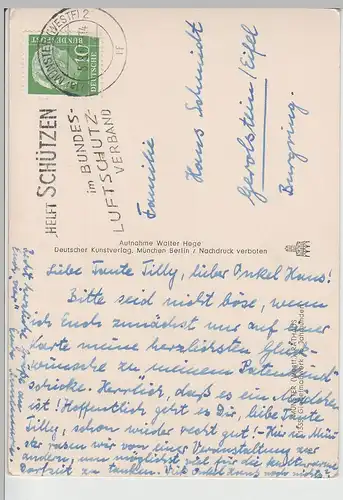 MÜNSTER (WESTF) 2
DEUTSCHE
BUNDESPOST
10
HELFT SCHÜTZEN
im BUNDES-
LUFTSCHUTZ-
VERBAND
Familie
Hans Schmidt
Gerolstein/Eifel
Burgring.
Aufnahme Walter Hege
Deutscher Kunstverlag, München Berlin / Nachdruck verboten
Liebe Tante Tilly, lieber Onkel Hans!
Bitte seid nicht böse, wenn
ich Euch zunächst nur auf einer
Karte meine herzlichsten Glück-
wünsche zu meinem Patenkind
schicke. Herrlich, daß es ein Mädchen
ist! Hoffentlich geht es Dir, liebe Tante
Tilly, schon wieder recht gut! - Hier in Mün-
ster rasen wir von einer Veranstaltung zur
andern, um möglichst viel für die kulturarme
Dorfzeit zu tanken.
Recht herzliche Grüße